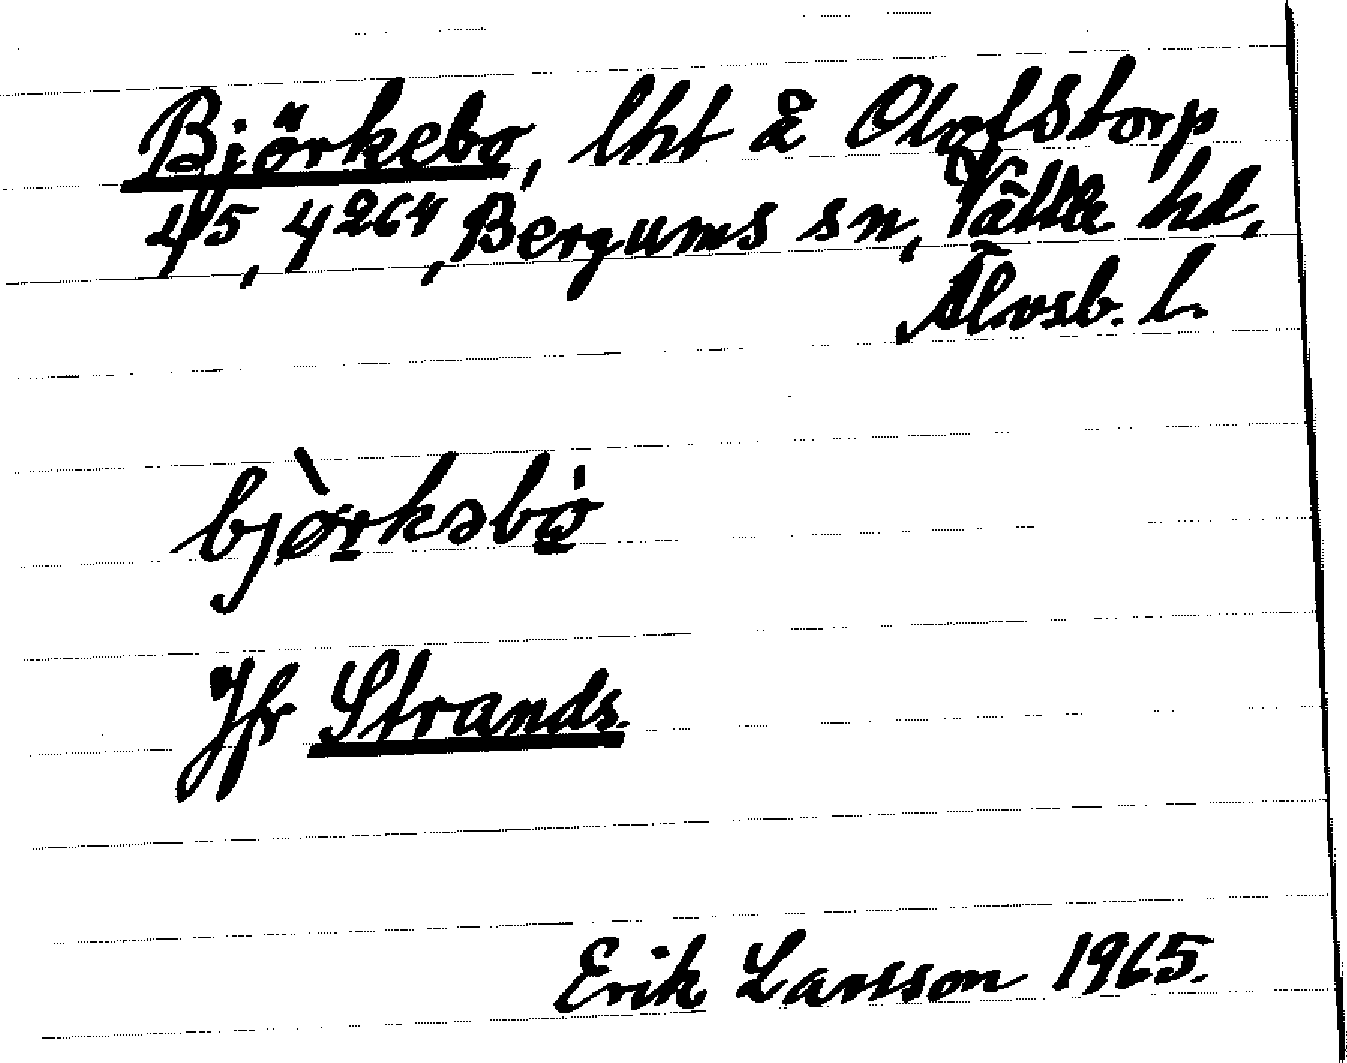 Björkebo, lht å Olofstorp
4⁄5, 4²⁶⁴, Bergums sn, Vättle hd,
Älvsb. l.
bjø̀rkəbo̩
Jfr Strands.
Erik Larsson 1965.